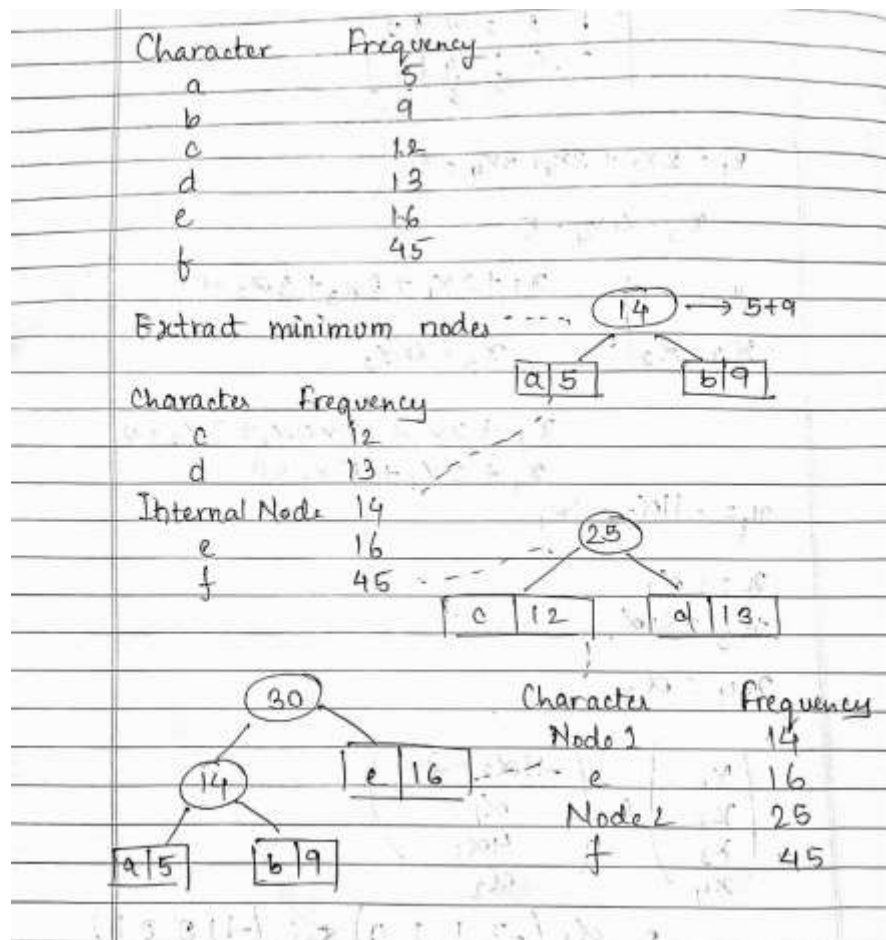 Character Frequency
a 5
b 9
c 12
d 13
e 16
f 45
Extract minimum nodes 14 → 5+9
a 5 b 9
Character Frequency
c 12
d 13
Internal Node 14
e 16
f 45
25
c 12 d 13
30
14
e 16
a 5 b 9
Character Frequency
Node 1 14
e 16
Node 2 25
f 45